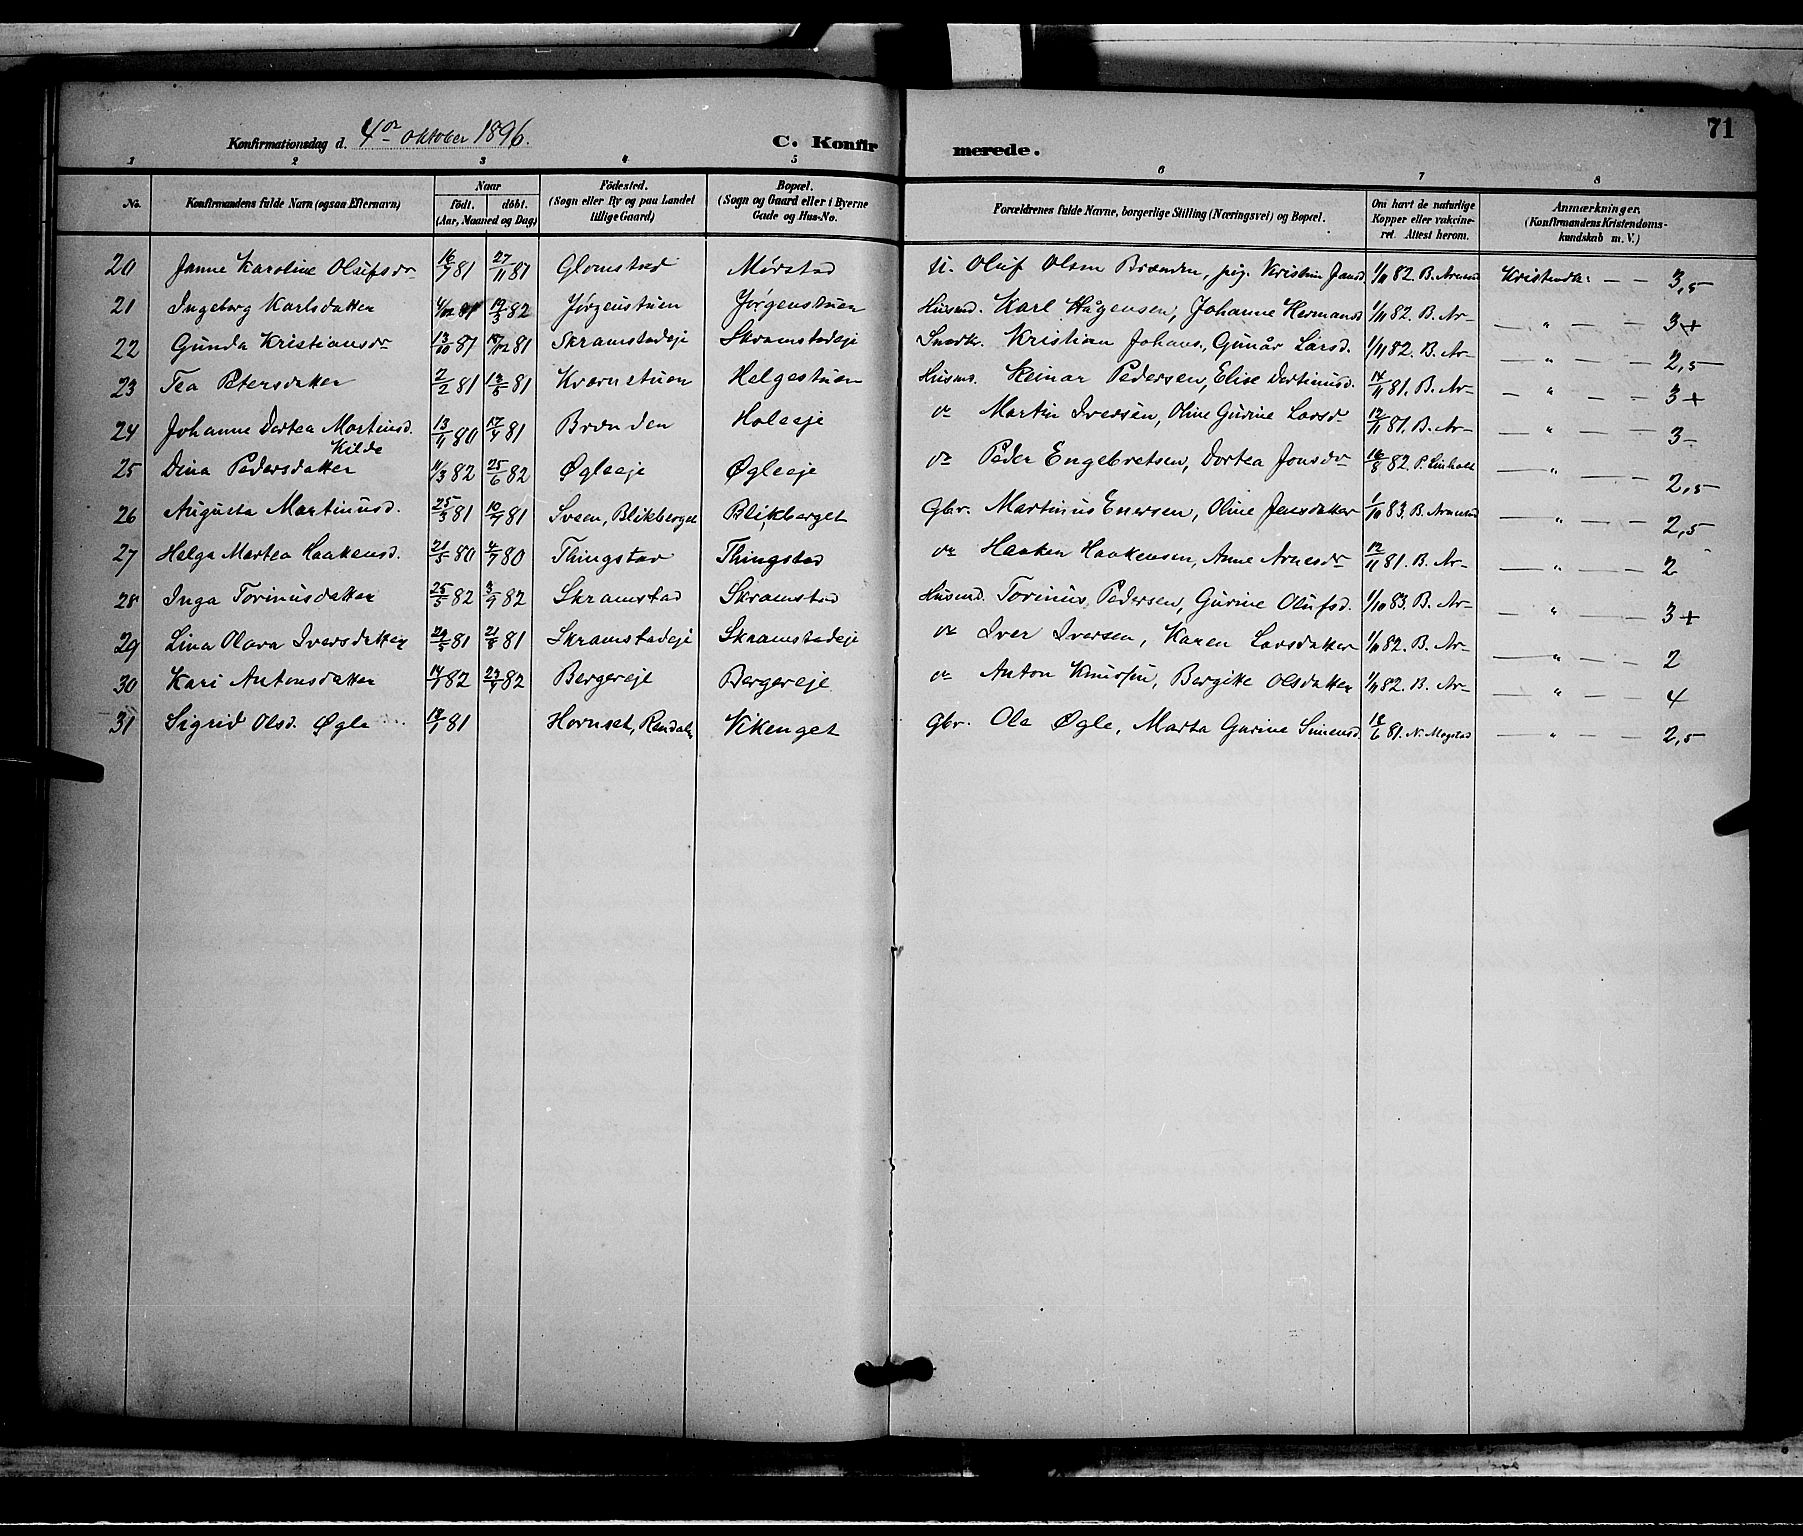 71
Konfirmationsdag d. 4de Oktober 1896.
C. Konfirmerede.
1 2 3 4 5 6 7 8
No. Konfirmandens fulde Navn (ogsaa Efternavn) Naar födt. döbt. (Aar, Maaned og Dag) Födested. (Sogn eller By og paa Landet tillige Gaard) Bopæl. (Sogn og Gaard eller i Byerne Gade og Hus-No. Forældrenes fulde Navne, borgerlige Stilling (Næringsvei) og Bopæl. Om havt de naturlige Kopper eller vakcineret. Attest herom. Anmærkninger. (Konfirmandens Kristendomskundskab m. V.)
20 Janne Karoline Olufsdr 16/9 81 27/11 81 Glomstad Mørstad U. Oluf Olsen Brænden, pig. Kristine Jansd. 1/11 82. B. Arnesad Kristendk: — — 3,5
21 Ingeborg Karlsdatter 4/12 81 12/3 82 Jørgenstuen Jørgenstuen Husmd. Karl Hågensen, Johanne Hermansd 1/11 82. B. Ar— — " — — 3+
22 Gunda Kristiansdr 13/10 81 18/12 81 Skramstadeje Skramstadeje Snedk. Kristian Johans., Gunår Larsd. 1/11 82. B. Ar— — " — — 2,5
23 Tea Petersdatter 2/2 81 13/5 81 Kværnstuen Helgestuen Husms. Reinar Pedersen, Elise Dortinusd. 14/11 81. B. Ar— — " — — 3+
24 Johanne Dortea Martinsd. Kilde 13/11 80 17/4 81 Brænden Holeeje dr Martin Iversen, Oline Gurine Larsdr 12/11 81. B. Ar— — " — — 3-
25 Dina Pedersdatter 11/3 82 25/6 82 Øgleeje Øgleeje dr Peder Engebretsen, Dortea Jonsdr 16/8 82 P. Linholt — " — — 2,5
26 Augusta Martinusd. 25/3 81 10/7 81 Sveen, Blikberget Blikberget Gbr. Martinus Enersen, Oline Jensdatter 1/10 83. B. Arnesad — " — — 2,5
27 Helga Martea Haakensd. 21/5 80 4/7 80 Thingstad Thingstad dr Haaken Haakensen, Anne Arnesdr 12/11 81. B. Ar— — " — — 2
28 Inga Torinusdatter 25/5 82 3/9 82 Skramstad Skramstad Husmd. Torinus Pedersen, Gurine Olufsd. 1/10 83. B. Ar— — " — — 3+
29 Lina Olava Iversdatter 24/5 81 21/8 81 Skramstadeje Skramstadeje dr Iver Iversen, Karen Larsdatter 1/11 82. B. Ar— — " — — 2
30 Kari Antonsdatter 14/7 82 23/7 82 Bergereje Bergereje dr Anton Knutsen, Bergitte Olsdatter 1/11 82. B. Ar— — " — — 4
31 Sigrid Olsd. Øgle 18/7 81 Hornset, Rendalen Vikenget Gbr. Ole Øgle, Marta Gurine Simensd. 18/6 81. N. Mogstad — " — — 2,5